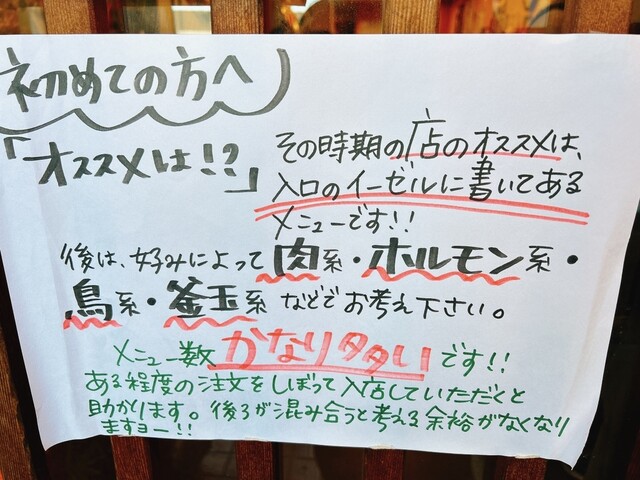 初めての方へ
「オススメは!?」
その時期の店のオススメは、
入口のイーゼルに書いてある
メニューです!!
後は、好みによって肉系・ホルモン系・
鳥系・釜玉系などでお考え下さい。
メニュー数かなり多いです!!
ある程度の注文をしぼって入店していただくと
助かります。後ろが混み合うと考える余裕がなくなり
ますョー!!